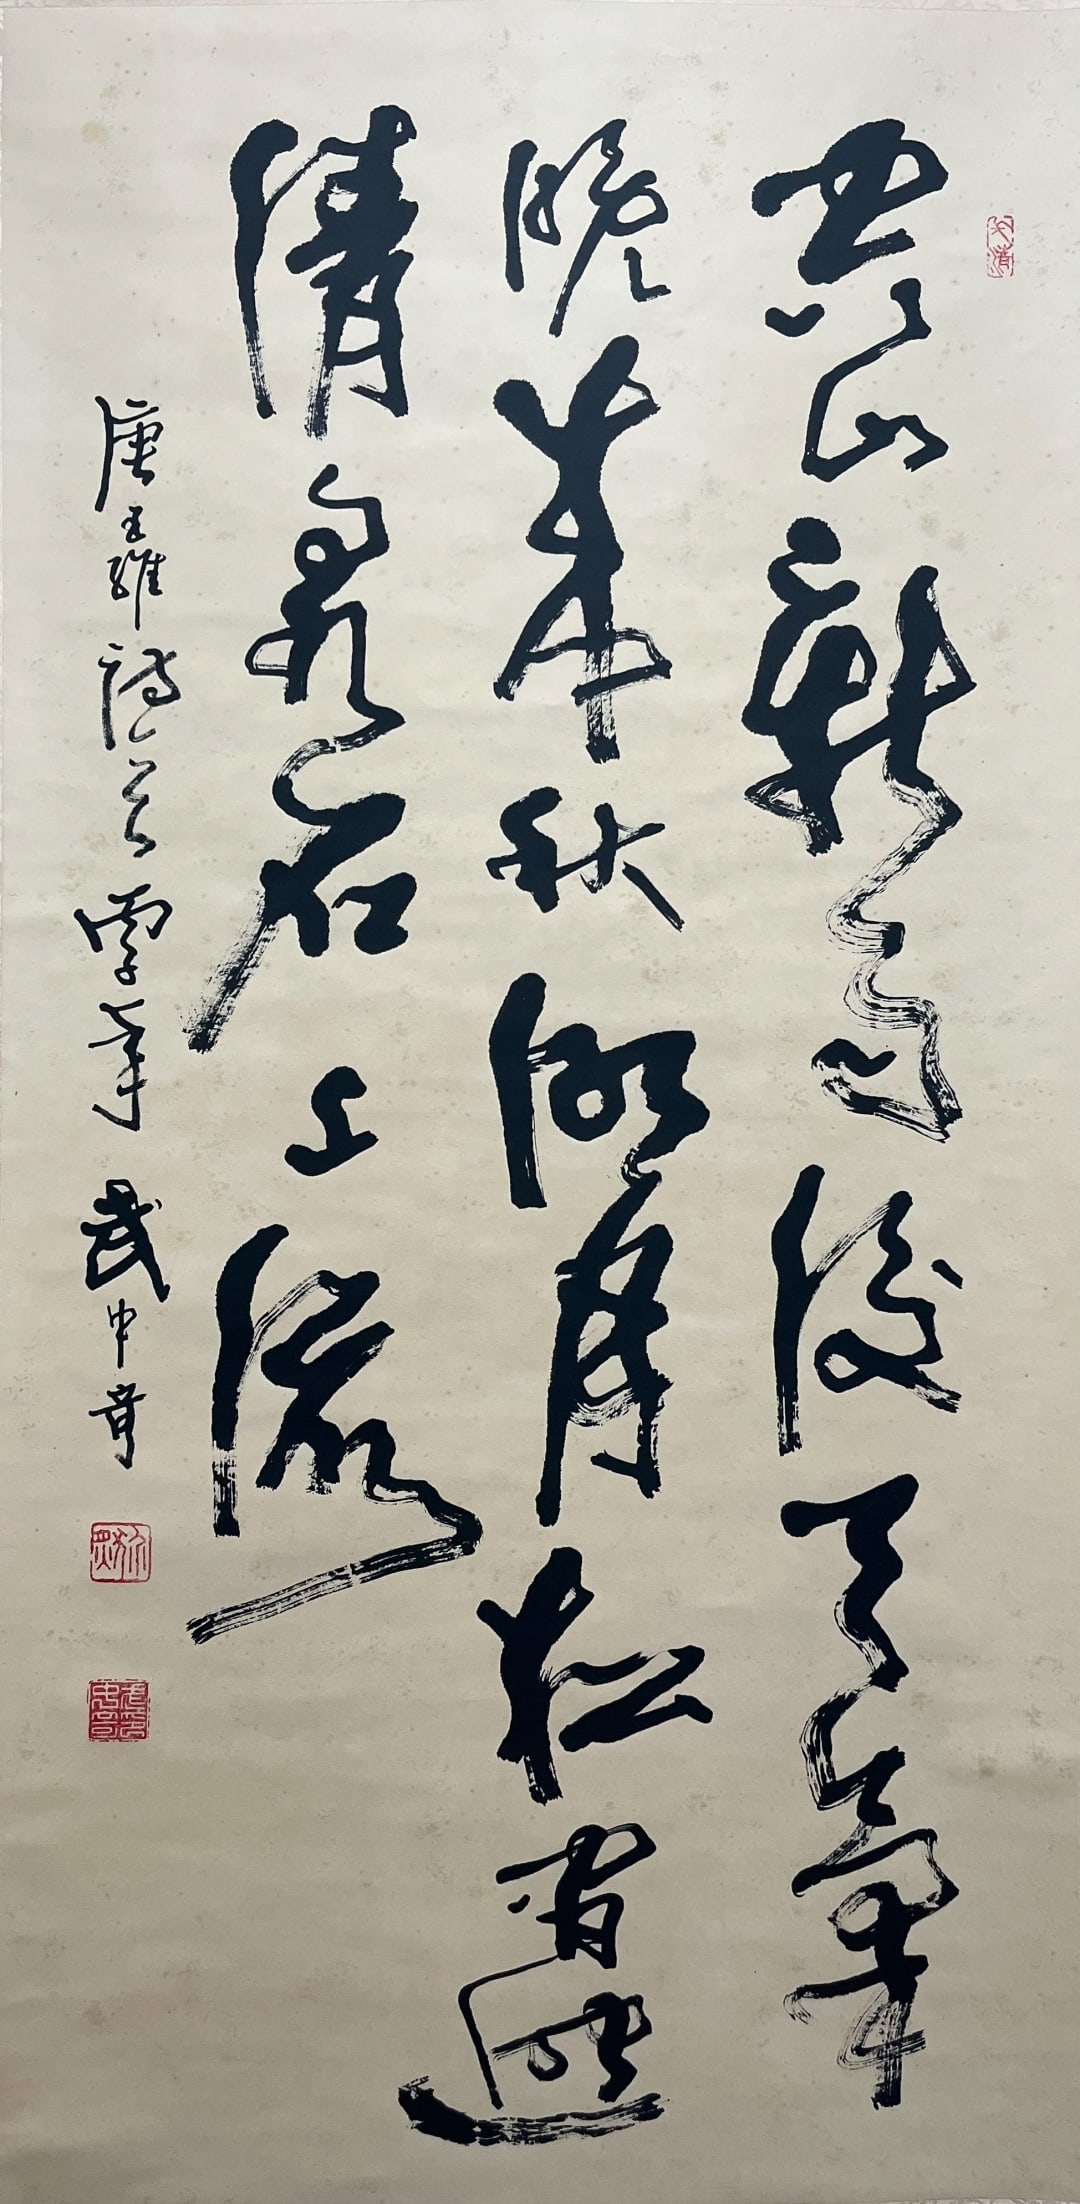 空山新雨後天氣
晚來秋明月松間照
清泉石上流
唐王維詩 武中奇